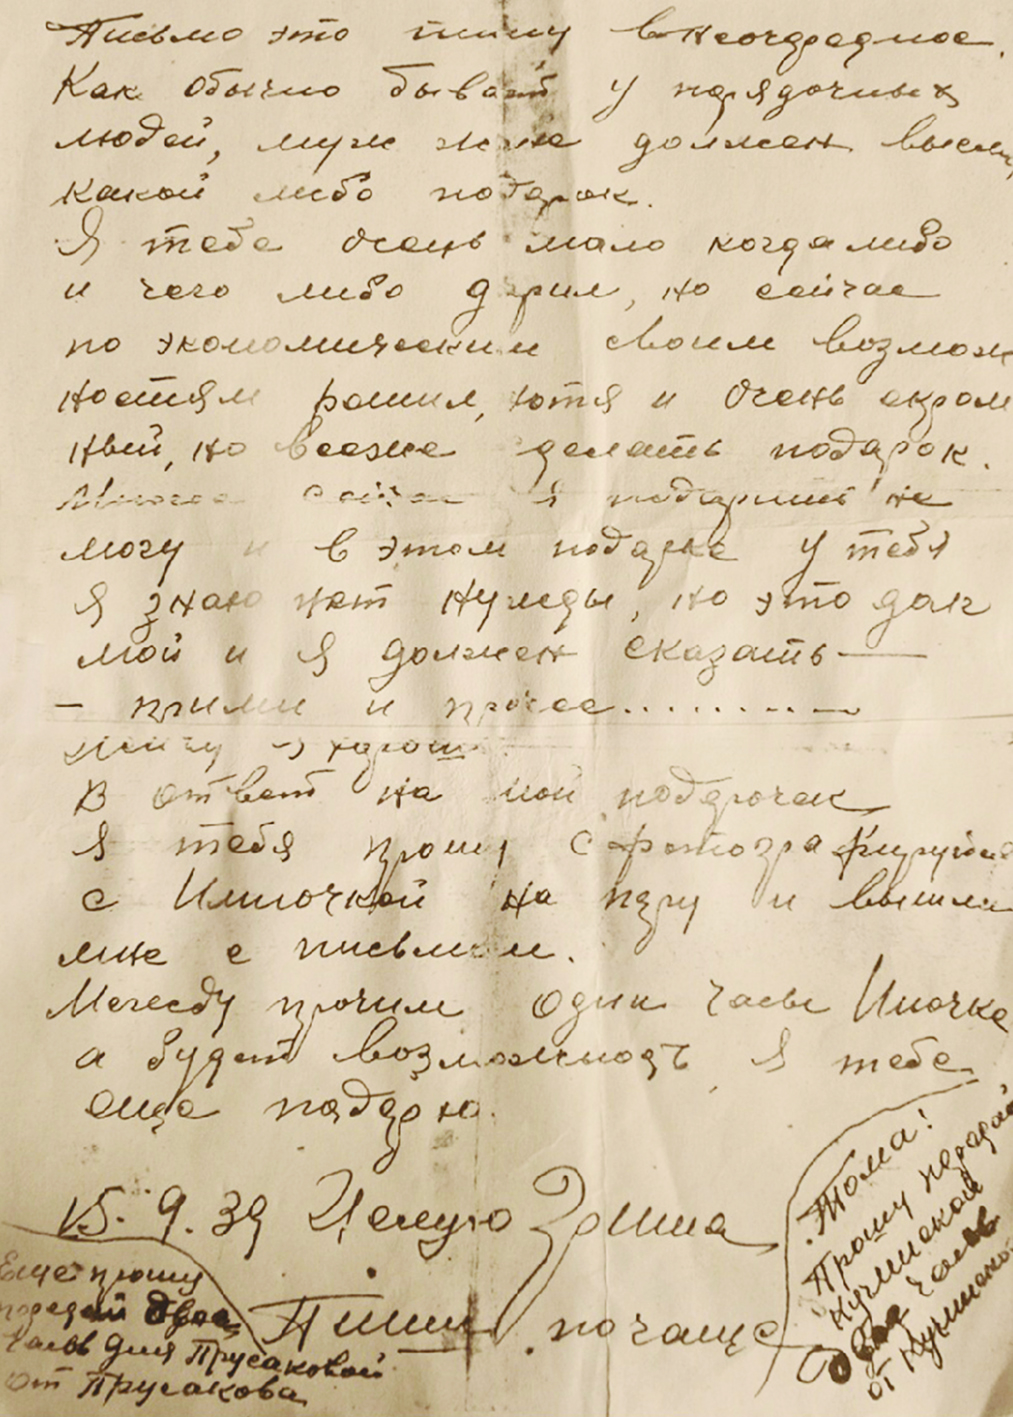 Письмо это пишу внеочередное.
Как обычно бывает у порядочных
людей, муж жене должен
какой либо подарок.
Я тебе очень мало когда либо
и чего либо дарил, но сейчас
по экономическим своим возмож
ностям решил, хотя и очень скром
ный, но всеже сделать подарок.
подарить не
могу и в этом подарке у тебя
я знаю нет нужды, но это долг
мой и я должен сказать —
— прими и прочее..........
В ответ на мой подарочек
я тебя прошу сфотографируйся
с Инночкой на пару и вышли
мне с письмом.
Между прочим один часы Иночке
а будет возможность я тебе
еще подарю.
15.9.39 Целую Зяма
Пиши почаще
Еще прошу
передай двое
часы для Прусаковой
от Прусакова
Тома!
Прошу передай
часы
от